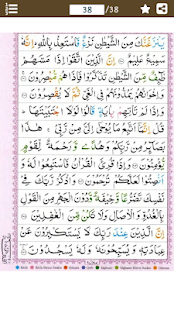 38 /38
يَنْزَغَنَّكَ مِنَ الشَّيْطٰنِ نَزْغٌ فَاسْتَعِذْ بِاللّٰهِ ؕ اِنَّهٗ
سَمِيْعٌ عَلِيْمٌ ۝ اِنَّ الَّذِيْنَ اتَّقَوْا اِذَا مَسَّهُمْ
طٰٓئِفٌ مِّنَ الشَّيْطٰنِ تَذَكَّرُوْا فَاِذَا هُمْ مُّبْصِرُوْنَ ۝
وَاِخْوَانُهُمْ يَمُدُّوْنَهُمْ فِى الْغَىِّ ثُمَّ لَا يُقْصِرُوْنَ ۝
وَاِذَا لَمْ تَاْتِهِمْ بِاٰيَةٍ قَالُوْا لَوْلَا اجْتَبَيْتَهَا ؕ
قُلْ اِنَّمَاۤ اَتَّبِعُ مَا يُوْحٰٓى اِلَىَّ مِنْ رَّبِّىْ ۚ هٰذَا
بَصَآئِرُ مِنْ رَّبِّكُمْ وَهُدًى وَّرَحْمَةٌ لِّقَوْمٍ يُّؤْمِنُوْنَ ۝
وَاِذَا قُرِئَ الْقُرْاٰنُ فَاسْتَمِعُوْا لَهٗ وَ
اَنْصِتُوْا لَعَلَّكُمْ تُرْحَمُوْنَ ۝ وَاذْكُرْ رَّبَّكَ فِىْ
نَفْسِكَ تَضَرُّعًا وَّخِيْفَةً وَّدُوْنَ الْجَهْرِ مِنَ الْقَوْلِ
بِالْغُدُوِّ وَالْاٰصَالِ وَلَا تَكُنْ مِّنَ الْغٰفِلِيْنَ ۝
اِنَّ الَّذِيْنَ عِنْدَ رَبِّكَ لَا يَسْتَكْبِرُوْنَ عَنْ
عِبَادَتِهٖ وَيُسَبِّحُوْنَهٗ وَلَهٗ يَسْجُدُوْنَ ۝